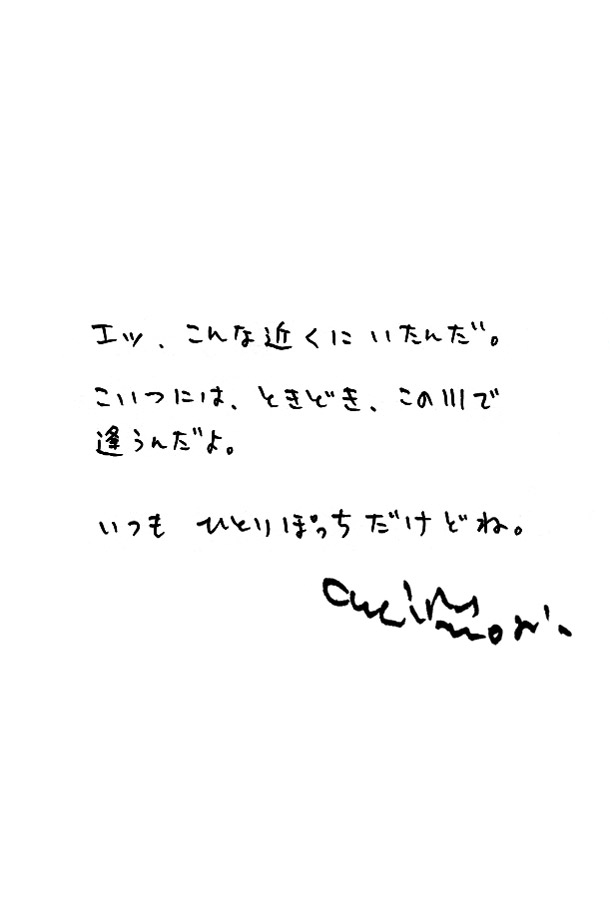 エッ、こんな近くにいたんだ。
こいつには、ときどき、この川で
逢うんだよ。
いつも ひとりぼっちだけどね。